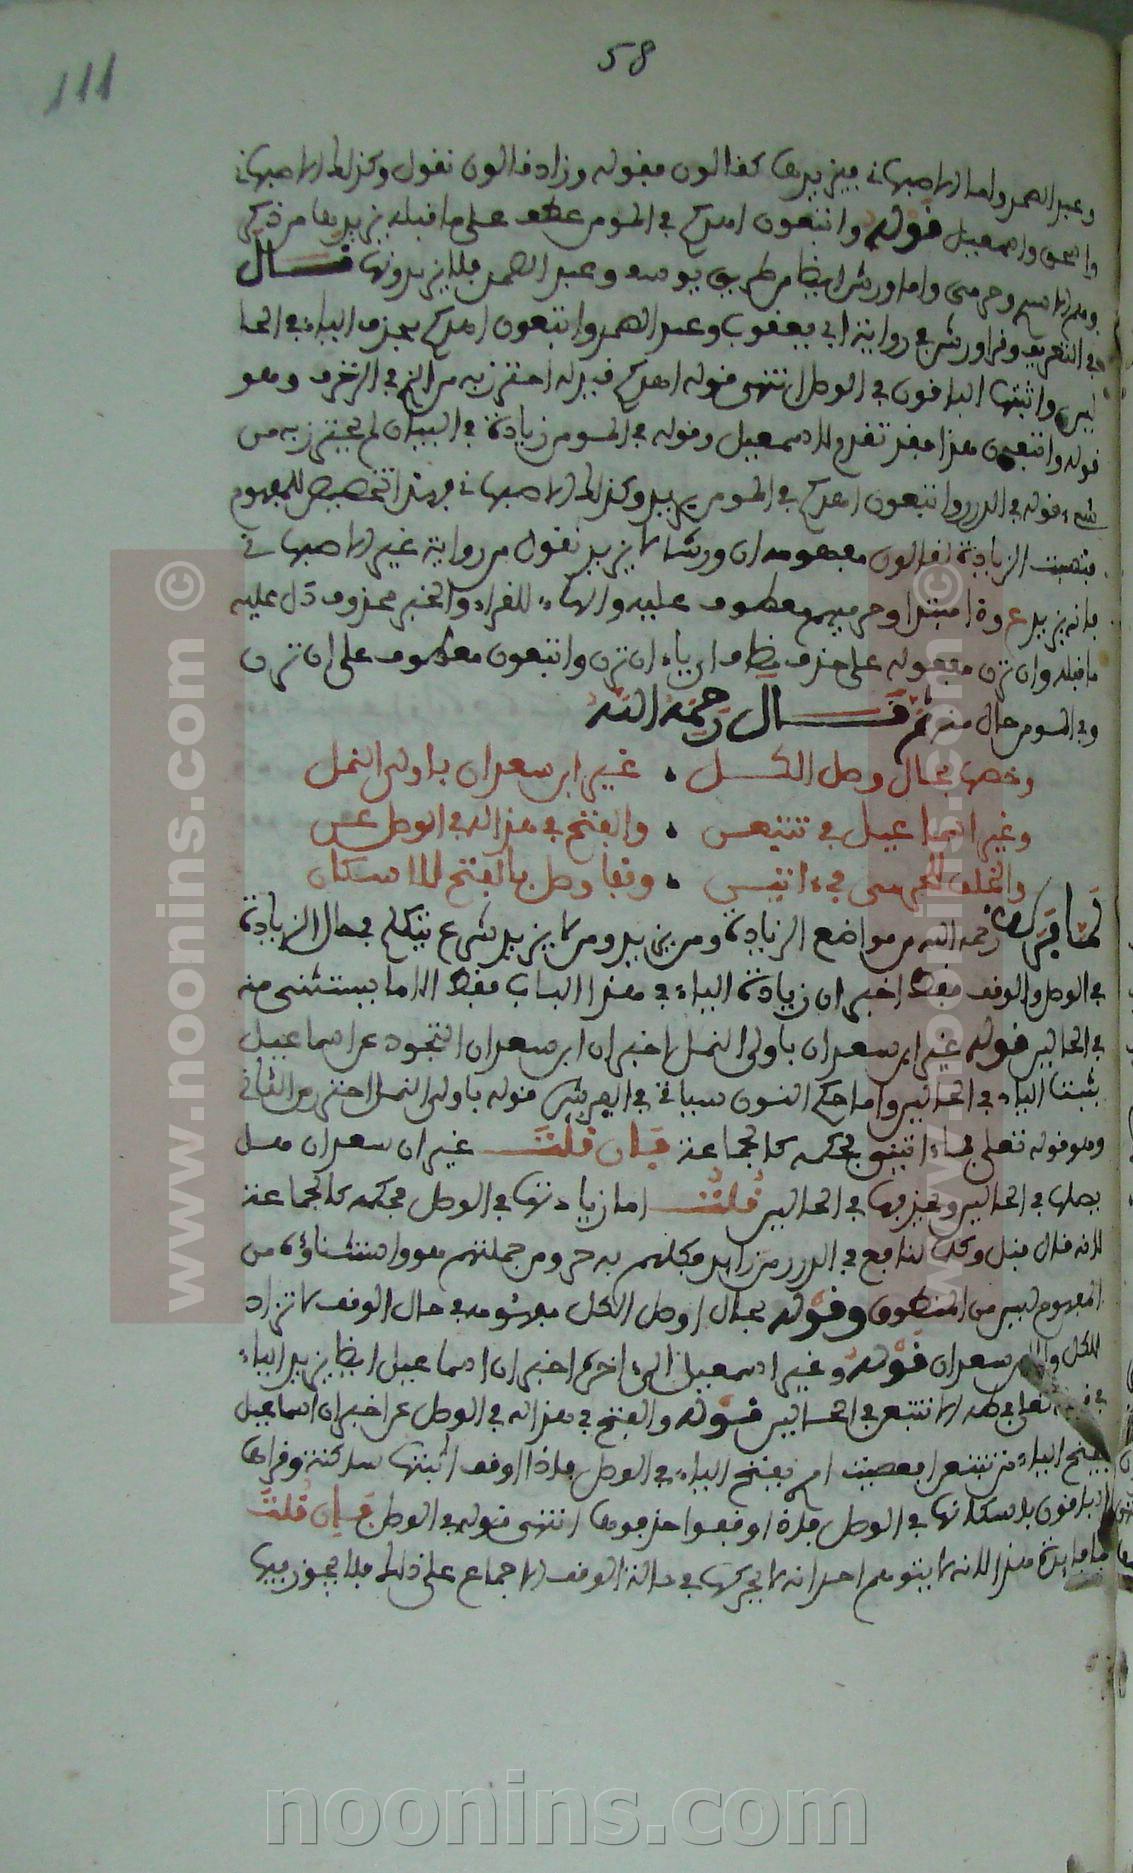 58
111
وعبد الصمد واما الاصبهاني فيزيدها كقالون فقوله وزاد قالون نقول وكذلك الاصبهاني
واسحق واسمعيل قوله واتبعون اهدكم في المومن عطف على ما قبله يزيدها من ذكر
وحرمى واما ورش ايضا من طريق يوسف وعبد الصمد فلا يزيدونها قال
في التعريف وقرا ورش في رواية ابي يعقوب وعبد الصمد واتبعون اهدكم بحذف الياء في الحا
لين واثبتها الباقون في الوصل انتهى قوله اهدكم قيد له احترز به من الذي في الزخرف وهو
قوله واتبعون هذا فقد تقدم لاسمعيل وقوله في المومن زيادة في البيان لم يحترز به من
شيء قوله في الدرر واتبعون اهدكم في المومن يريد وكذلك الاصبهاني فهذا تخصيص للمفهوم
الزيادة لقالون مفهومه ان ورشا لا يزيد نقول من رواية غير الاصبهاني
فانه يزيد مبتدا وحرميهم معطوف عليه والهاء للقراء والخبر محذوف دل عليه
ما قبله وان ترن مفعوله على حذف مضاف اي ياء ان ترن واتبعون معطوف على ان ترن
وفي المومن حال منه ثم قال رحمه الله
وخصها بحال وصل الكل • غير ابن سعدان باولى النمل
وغير اسماعيل في تتبعن • والفتح في هذا له في الوصل عن
والخلف للعرمى في ءاتين • وقفا وصل بالفتح للاسكان
لما فرغ رحمه الله من مواضع الزيادة ومن يزيد ومن لا يزيد شرع يتكلم في حال الزيادة
في الوصل والوقف فقط اخبر ان زيادة الياء في هذا الباب فقط الا ما يستثنى منه
في الحالين قوله غير ابن سعدان باولى النمل اخبر ان ابن سعدان عن اسماعيل
يثبت الياء في الحالين واما حكم النون سياتي في الفرش قوله باولى النمل احترز من الثاني
وهو قوله تعلى فما ءاتين فحكمه كالجماعة فان قلت غير ان سعدان هل
يصلها في الحالين ويحذفها في الحالين قلت اما زيادتها في الوصل فحكمه كالجماعة
لانه قال قبل وكل لنافع في الدرر من زايد فكلهم به حر ومن جملتهم هو واستثناؤه من
المفهوم ليس من المنطوق وقوله بحال وصل الكل مفهومه في حال الوقف لا تزاد
للكل سعدان قوله وغير اسمعيل الى اخره اخبر ان اسماعيل ايضا يزيد الياء
تعلى في طه الا تتبعن في الحالين قوله والفتح في هذا له في الوصل عن اخبر ان اسماعيل
يفتح الياء من تتبعن افعصيت اي يفتح الياء في الوصل فاذا وقف اثبتها ساكنة وقراها
الباقون باسكانها في الوصل فاذا وقفوا حذفوها انتهى قوله في الوصل فان قلت
ما فايدة هذا لانه لا يتوهم احد انه لا يحركها في حالة الوقف الاجماع على ذلك فلا يجوز فيها
www.noonins.com ©
www.noonins.com ©
noonins.com